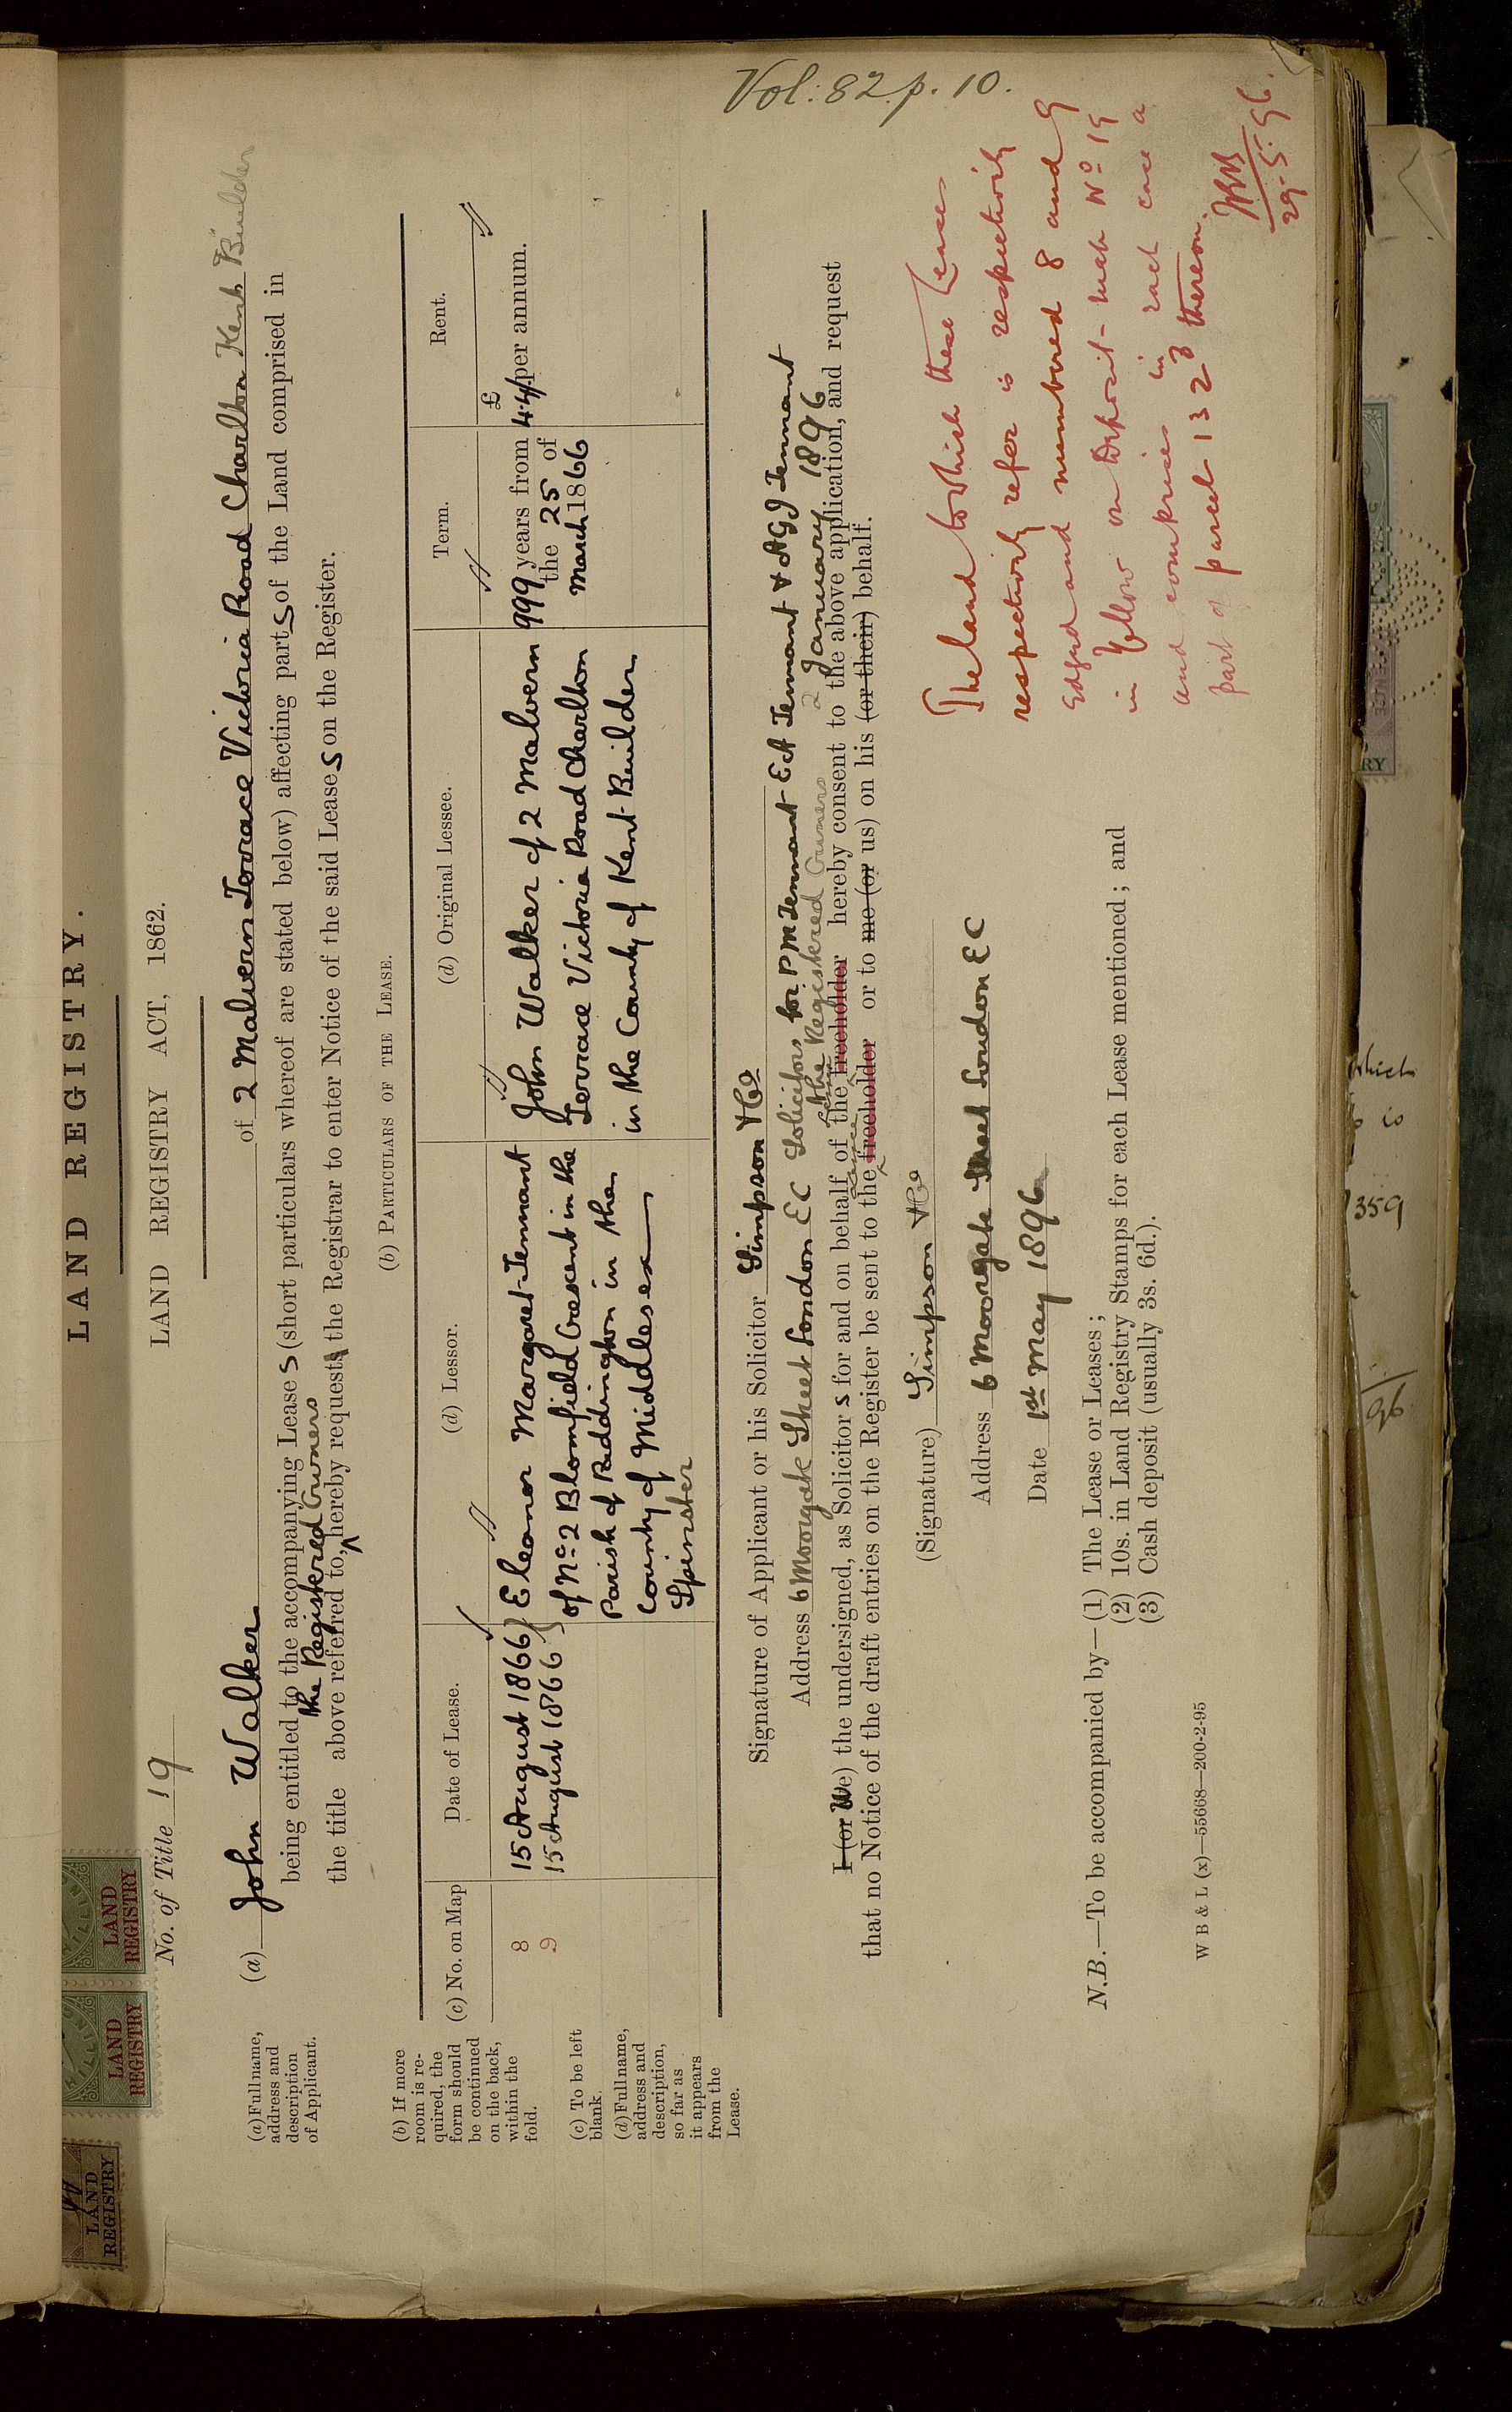 LAND REGISTRY
LAND REGISTRY
LAND REGISTRY
LAND REGISTRY.
LAND REGISTRY ACT, 1862.
No. of Title 19
Vol: 82 p. 10.
(a) John Walker of 2 Malvern Terrace Victoria Road Charlton Kent Builder
being entitled to the accompanying Lease s (short particulars whereof are stated below) affecting parts of the Land comprised in
the Registered Owners
the title above referred to, hereby request the Registrar to enter Notice of the said Lease s on the Register.
(a) Full name, address and description of Applicant.
(b) PARTICULARS OF THE LEASE.
(b) If more room is re-
quired, the
form should
be continued
on the back,
within the
fold.
(c) To be left
blank.
(d) Full name,
address and
description,
so far as
it appears
from the
Lease.
(c) No. on Map Date of Lease. (d) Lessor. (d) Original Lessee. Term. Rent.
8 15 August 1866
9 15 August 1866
Eleanor Margaret Tennant
of No 2 Blomfield Crescent in the
Parish of Paddington in the
County of Middlesex
Spinster
John Walker of 2 Malvern
Terrace Victoria Road Charlton
in the County of Kent Builder
999 years from
the 25 of
March 1866
£
4.4/ per annum.
Signature of Applicant or his Solicitor Simpson & Co
Address 6 Moorgate Street London EC Solicitors for P M Tennant E A Tennant & A G J Tennant
the Registered Owners 2 January 1896
I (or We) the undersigned, as Solicitor s for and on behalf of the freeholder hereby consent to the above application, and request
that no Notice of the draft entries on the Register be sent to the freeholder or to me (or us) on his (or their) behalf.
(Signature) Simpson & Co
Address 6 Moorgate Street London EC
Date 1st May 1896
The land to which these Leases
respectively refer is respectively
edged and numbered 8 and 9
in yellow on Deposit Map No 19
and comprises in each case a
part of parcel 132 thereon.
29.5.96.
N.B.—To be accompanied by—(1) The Lease or Leases;
(2) 10s. in Land Registry Stamps for each Lease mentioned; and
(3) Cash deposit (usually 3s. 6d.).
W B & L (x)—55668—200-2-95
which
is
359
96